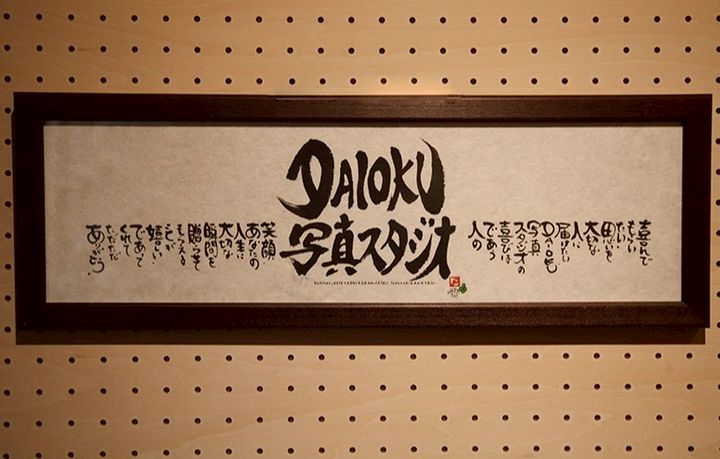 DAIOKU
写真スタジオ
喜んで
もらい
たい
思いを
大切な
人に
届けたい
DAIOKU
写真
スタジオの
喜びは
であう
人の
笑顔
あなたの
人生に
大切な
瞬間を
贈らせて
もらえる
ことが
嬉しい
であって
くれて
ただただ
ありがとう